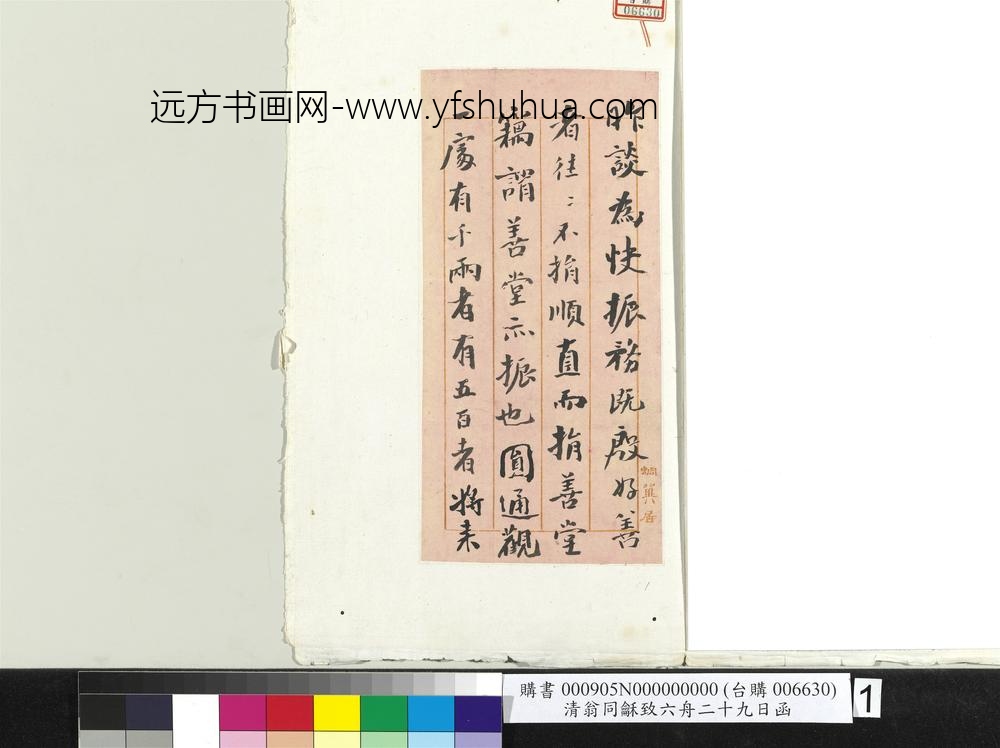 06630
远方书画网-www.yfshuhua.com
昨談為快振務既殷好善
者往〻不捐順直而捐善堂
竊謂善堂亦振也圓通觀
一處有千兩者有五百者將来
居
購書 000905N000000000 (台購 006630)
清翁同龢致六舟二十九日函
1